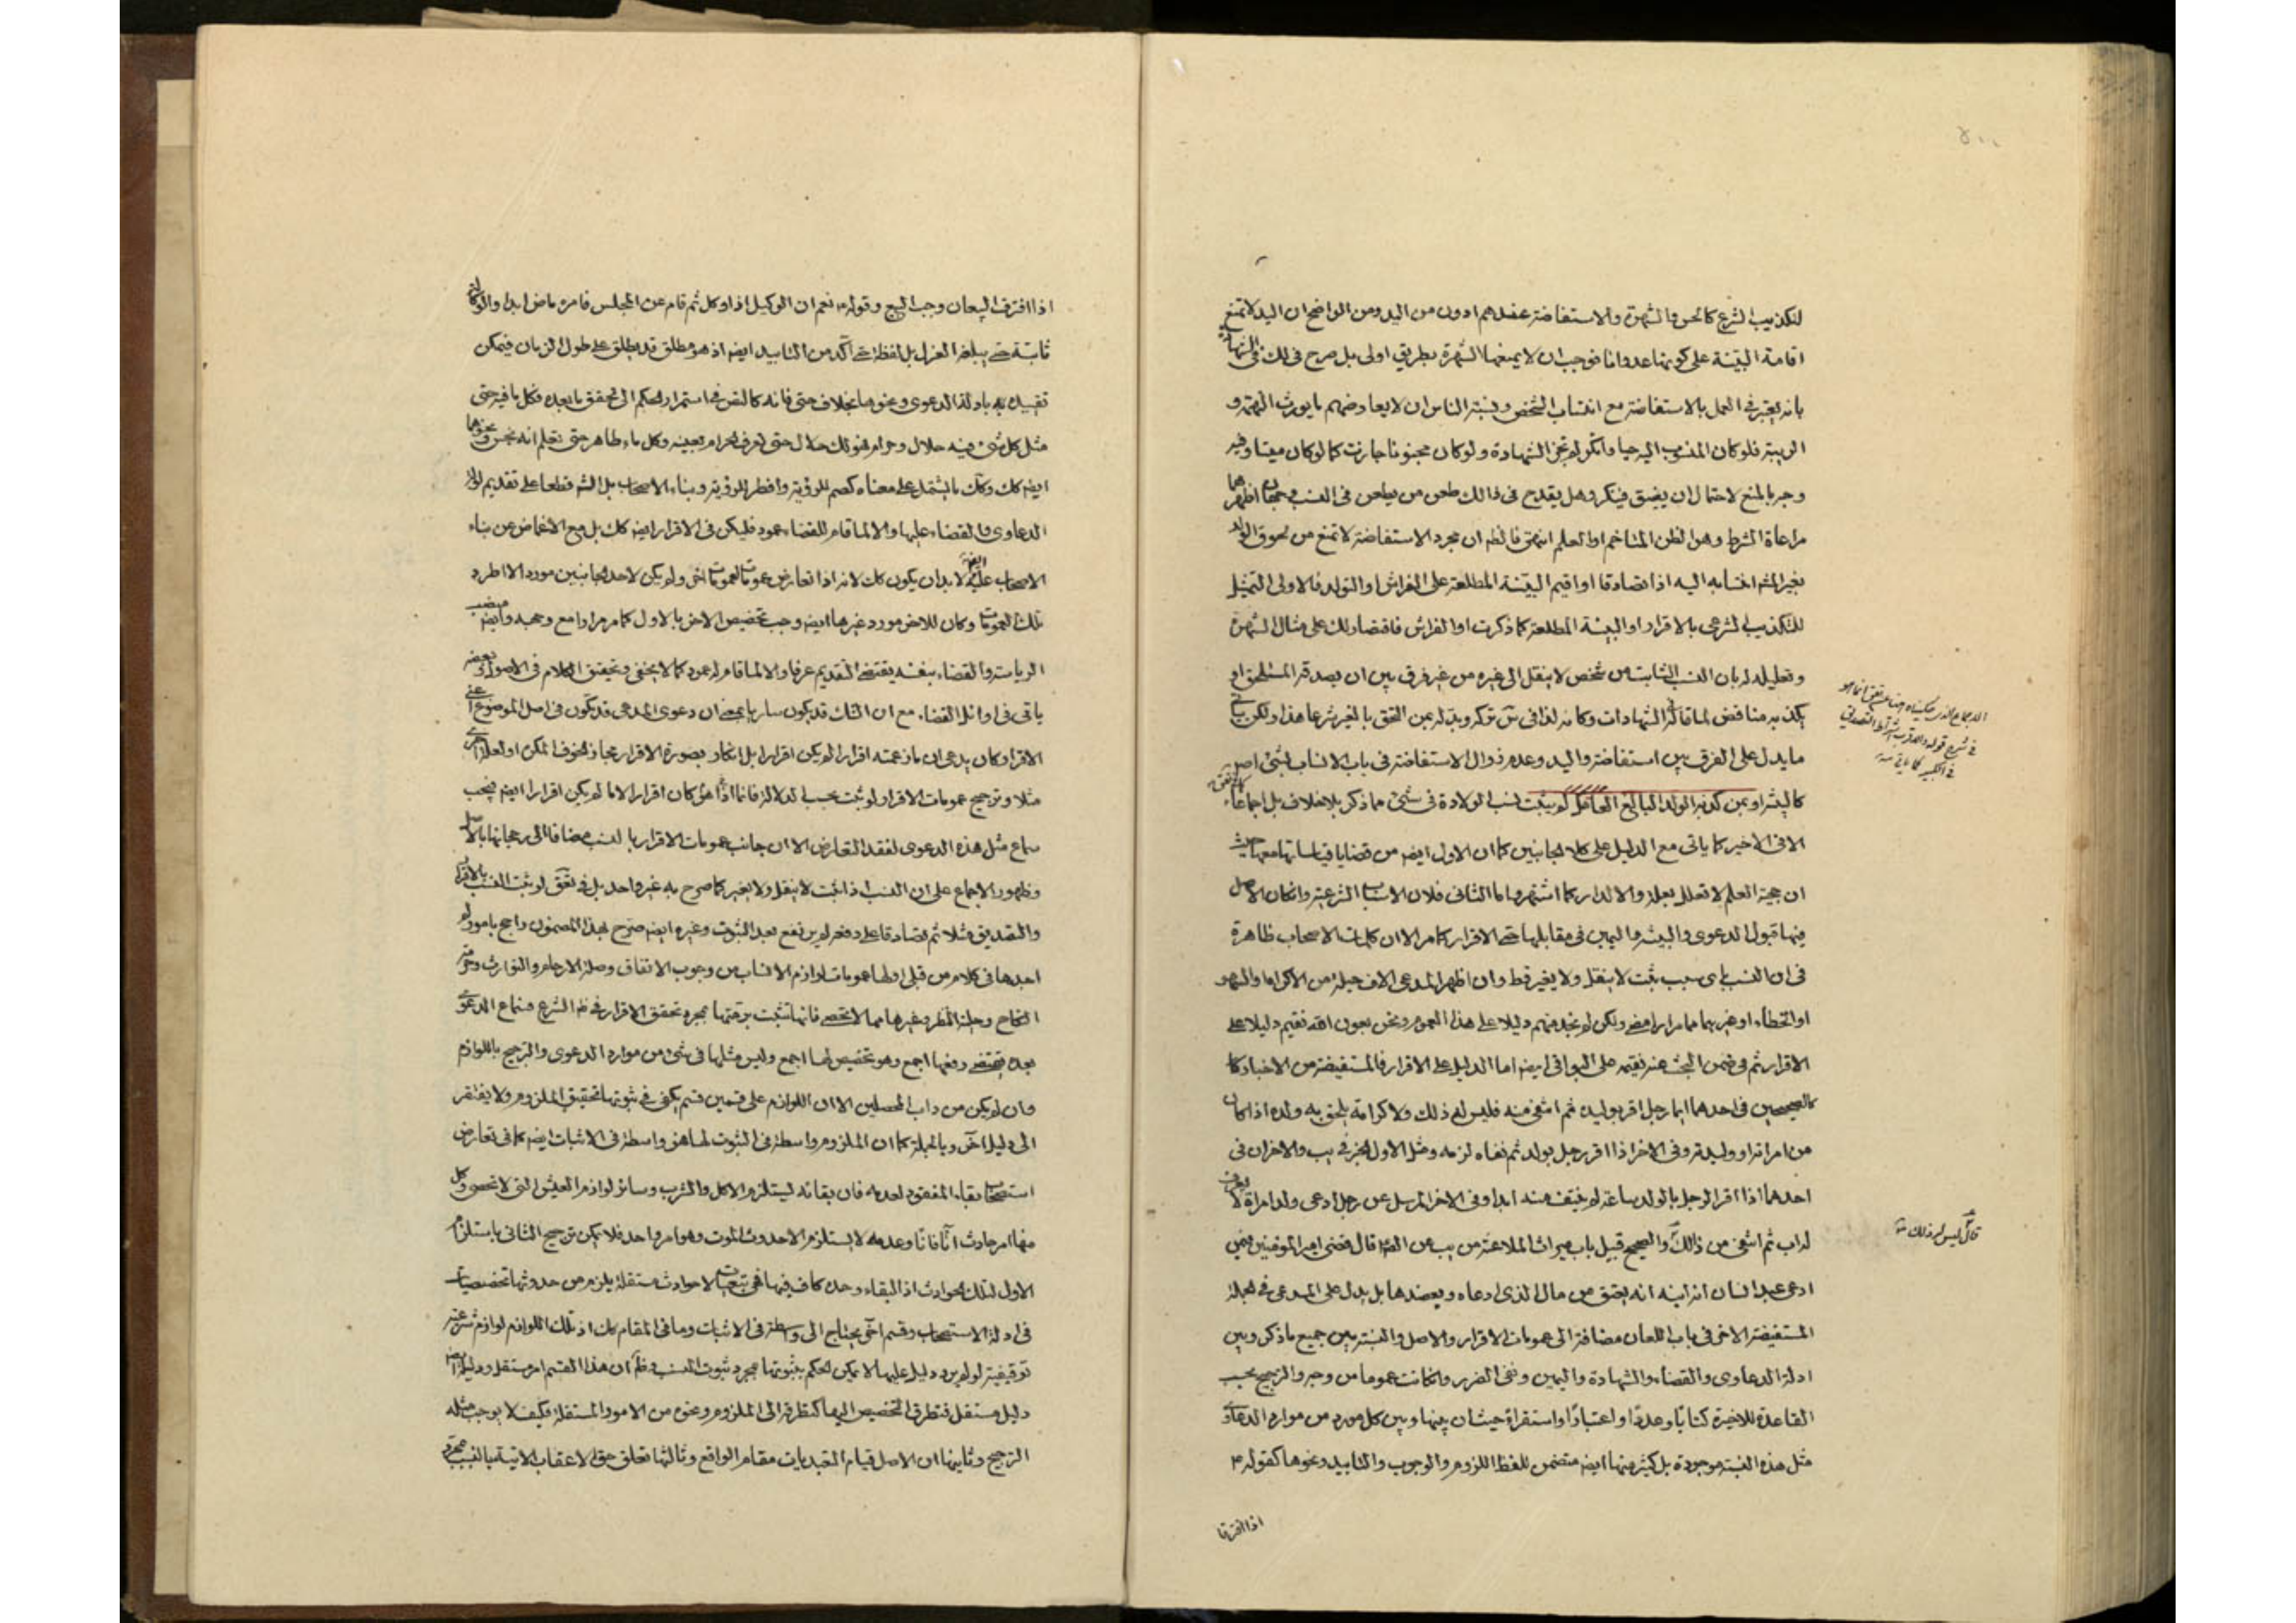 لتكذيب الشرع كالحس والشهرة والاستفاضة عندهم ادون من اليد ومن الواضح ان اليد لا تمنع
اقامة البينة على كونها عدوانا فوجب ان لا يمنعها الشهرة بطريق اولى بل صرح في لك في الشهادة
بانه يعتبر في العمل بالاستفاضة مع انتساب الشخص ونسبة الناس ان لا يعارضهم ما يورث التهمة و
الريبة فلو كان المنسوب اليه حيا وانكر لم تجز الشهادة ولو كان مجنونا جازت كما لو كان ميتا وفيه
وجه بالمنع لاحتمال ان يفيق فينكر وهل يقدح في ذالك طعن من يطعن في النسب وجهان اظهرهما
مراعاة الشرط وهو الظن المتاخم او العلم انتهى فالظ ان مجرد الاستفاضة لا تمنع من لحوق الولد
بغير المشتهر انتسابه اليه اذا تصادقا او اقيم البينة المطلعة على الفراش او التولد فالاولى التمثيل
للتكذيب الشرعي بالاقرار او البينة المطلعة كما ذكرت او الفراش فاقتصار لك على مثال الشهرة
وتعليله له بان النسب الثابت من شخص لا ينتقل الى غيره من غير فرق بين ان يصدقه المستلحق او
يكذبه مناقض لما قاله في الشهادات وكانه لذا في س تركه وبدله بمن التحق بالغير شرعا هذا ولكن سياتي
ما يدل على الفرق بين استفاضة واليد وعدم زوال الاستفاضة في باب الانساب بشئ اصلا
كالبينة او بمن كذبه الولد البالغ العاقل لم يثبت نسب الولادة في شئ مما ذكر بلا خلاف بل اجماعا
الا في الاخير كما ياتي مع الدليل على كلا الجانبين كما ان الاول ايضه من قضايا قياساتها معها حيث
ان حجية العلم لا تعلل بعلة والا لدار كما اشتهر واما الثاني فلان الاسباب الشرعية وان كان الاصل
فيها قبول الدعوى والبينة واليمين في مقابلها حتى الاقرار كما مر الا ان كلمات الاصحاب ظاهرة
في ان النسب باي سبب ثبت لا ينتقل ولا يغير قط وان اظهر المدعي الاف حيلة من الاكراه او السهو
او الخطاء او غيرهما مما مرارا مضى ولكن لم نجد منهم دليلا على هذا العموم ونحن بعون الله نقيم دليلا على
الاقرار ثم في ضمن البحث عنه نقيمه على البواقي ايضه اما الدليل على الاقرار فالمستفيضة من الاخبار كا
كالصحيحين في احدهما ايما رجل اقر بولده ثم انتفى منه فليس له ذلك ولا كرامة يلحق به ولده اذا كان
من امراته او وليدته وفي الاخر اذا اقر رجل بولد ثم نفاه لزمه ومثل الاول الخبر في يب والاخران في
احدهما اذا اقر الرجل بالولد ساعة لم ينتف منه ابدا وفي الاخر المرسل عن رجل ادعى ولد امراة لا يعرف
له اب ثم انتفى من ذالك والصحيح قبيل باب ميراث الملاعنة من يب عن الصه قال قضى امير المؤمنين فيمن
ادعى عبد انسان انه ابنه انه يعتق من مال الذي ادعاه ويعضدها بل يدل على المدعى في الجملة
المستفيضة الاخرى في باب اللعان مضافة الى عمومات الاقرار والاصل والنسبة بين جميع ما ذكر وبين
ادلة الدعاوى والقضاء والشهادة واليمين ونفي الضرر وان كانت عموما من وجه والترجيح بحسب
القاعدة للاخيرة كتابا وعددا واعتبارا واستقراء حيث ان بينها وبين كل مورد من موارد الدعاوى
مثل هذه النسبة موجودة بل كثير منها ايضه متضمن للفظ اللزوم والوجوب والتابيد ونحوها كقوله م
اذا افترقا
في شرح قوله والاقرب اشتراط التصديق
في الكبير كما ياتي منه
قال ليس له ذلك منه
اذا افترق البيعان وجب البيع وقوله نعم ان الوكيل اذا وكل ثم قام عن المجلس فامره ماض ابدا والوكالة
ثابتة حتى يبلغه العزل بل لفظة حتى آكد من التابيد ايضه اذ هو مطلق قد يطلق على طول الزمان فيمكن
تقييده به بادلة الدعوى ونحوها بخلاف حتى فانه كالنص في استمرار الحكم الى تحقق ما بعده فكل ما فيه حتى
مثل كل شئ فيه حلال وحرام فهو لك حلال حتى تعرف الحرام بعينه وكل ماء طاهر حتى تعلم انه نجس ونحوهما
ايضه كك وكك ما اشتمل على معناه كصم للرؤية وافطر للرؤية وبناء الاصحاب بل الشه قطعا على تقديم ادلة
الدعاوى والقضاء عليها والا لما قام للقضاء عمود فليكن في الاقرار ايضه كك بل مع الاغماض عن بناء
الاصحاب عليه ايضه لا بد ان يكون كك لانه اذا تعارض عمومات لعمومات اخر ولم يكن لاحد الجانبين مورد الا اطرد
تلك العمومات وكان للاخر مورد غيرها ايضه وجب تخصيص الاخر بالاول كما مر مرارا مع وجهه وايضه منصب
الرياسة والقضاء بنفسه يقتضي التقديم عرفا والا لما قام له عمود كما لا يخفى وتحقيق الكلام في الاصول وبعضه
ياتي في اوائل القضاء مع ان الشك قد يكون ساريا بمعنى ان دعوى المدعي قد يكون في اصل الموضوع اعني
الاقرار كان يدعي ان ما زعمته اقرارا لم يكن اقرارا بل انكار بصورة الاقرار مجازا لخوف المكن او لعذر اخرى
مثلا وترجيح عمومات الاقرار لو ثبت بحسب الدلالة فانما اذا هو كان اقرارا لا ما لم يكن اقرارا ايضه فيجب
سماع مثل هذه الدعوى لفقد التعارض الا ان جانب عمومات الاقرار بالنسب مضافا الى رجحانها بالاصل
وظهور الاجماع على ان النسب اذا ثبت لا ينتقل ولا يغير كما صرح به غير واحد بل في تعق لو ثبت النسب بالاقرار
والتصديق مثلا ثم تصادقا على دفعه لم يرتفع بعد الثبوت وغيره ايضه صرح بهذا المضمون راجح بامور له
احدها في كلام من قبلي اولها عمومات لوازم الانساب من وجوب الانفاق وصلة الارحام والتوارث وحرمة
النكاح وحلية النظر وغيرها مما لا تحصى فانها تثبت برمتها بمجرد تحقق الاقرار في ظ الشرع فسماع الدعوى
بعده يقتضي رفعها اجمع وهو تخصيص لها اجمع وليس مثلها في شئ من موارد الدعوى والترجيح باللوازم
وان لم يكن من داب المحصلين الا ان اللوازم على قسمين قسم يكفي في ثبوتها تحقيق الملزوم ولا يفتقر
الى دليل اخر وبالجملة كما ان الملزوم واسطة في الثبوت لها هو واسطة في الاثبات ايضه كما في تعارض
استصحاب بقاء المفقود لعدمه فان بقائه ليستلزم الاكل والشرب وسائر لوازم العيش التي لا تحصى وكل
منها امر حادث انا فانا وعدمه لا يستلزم الا حدوث الموت وهو امر واحد فلا يمكن ترجيح الثاني باستلزام
الاول لتلك الحوادث اذ البقاء وحده كاف فيها فهي تبعيات لا حوادث مستقلة يلزم من حدوثها تخصيصات
في ادلة الاستصحاب وقسم اخر يحتاج الى واسطة في الاثبات وما في المقام كك اذ تلك اللوازم لوازم شرعية
توقيفية لو لم يرد دليل عليها لا يمكن الحكم بثبوتها بمجرد ثبوت النسب فظ ان هذا القسم امر مستقل ودليله ايضه
دليل مستقل فتطرق التخصيص اليها كتطرقه الى الملزوم ونحوه من الامور المستقلة فكيف لا يوجب مثله
الترجيح وثانيها ان الاصل قيام التعبديات مقام الواقع وثالثها تعلق حق الاعقاب الاتية بالنسب بمجرد